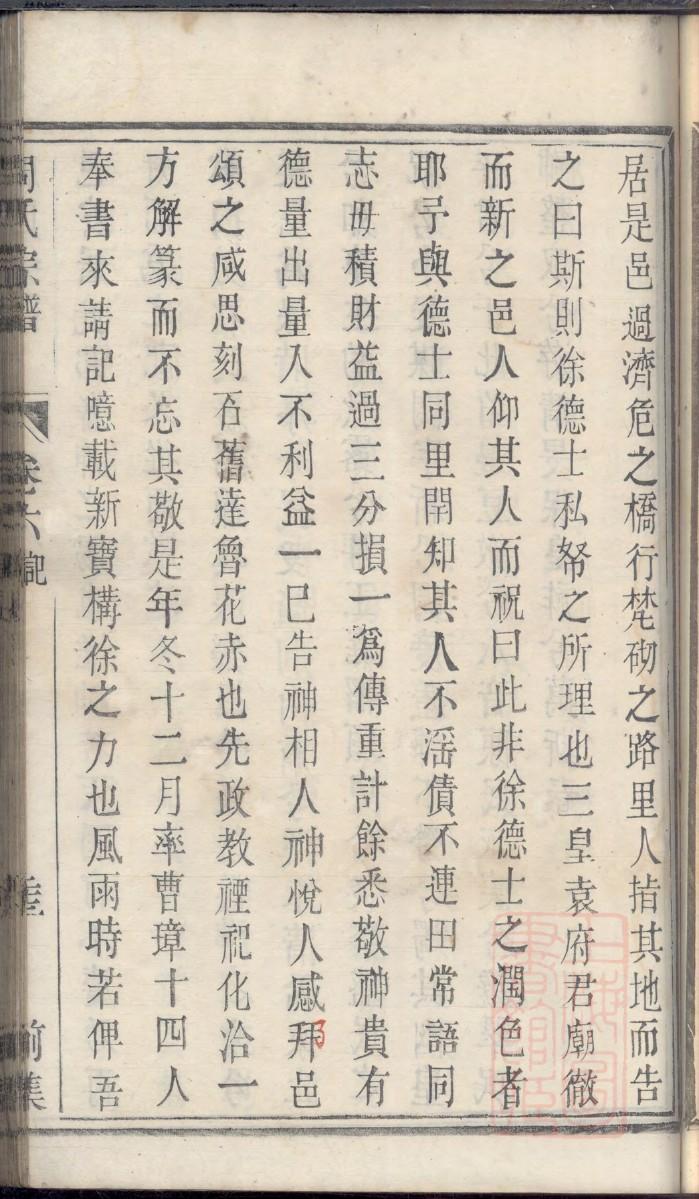 居是邑過濟危之橋行梵砌之路里人指其地而告
之曰斯則徐德士私帑之所理也三皇袁府君廟徹
而新之邑人仰其人而祝曰此非徐德士之潤色者
耶予與德士同里閈知其人不淫債不連田常語同
志毋積財益過三分損一為傳重計餘悉敬神貴有
德量出量入不利益一巳告神相人神悅人感拜邑
頌之咸思刻石舊達魯花赤也先政教禋祀化洽一
方解篆而不忘其敬是年冬十二月率曹璋十四人
奉書來請記噫載新寶構徐之力也風雨時若俾吾
周氏宗譜 卷六 記 前集